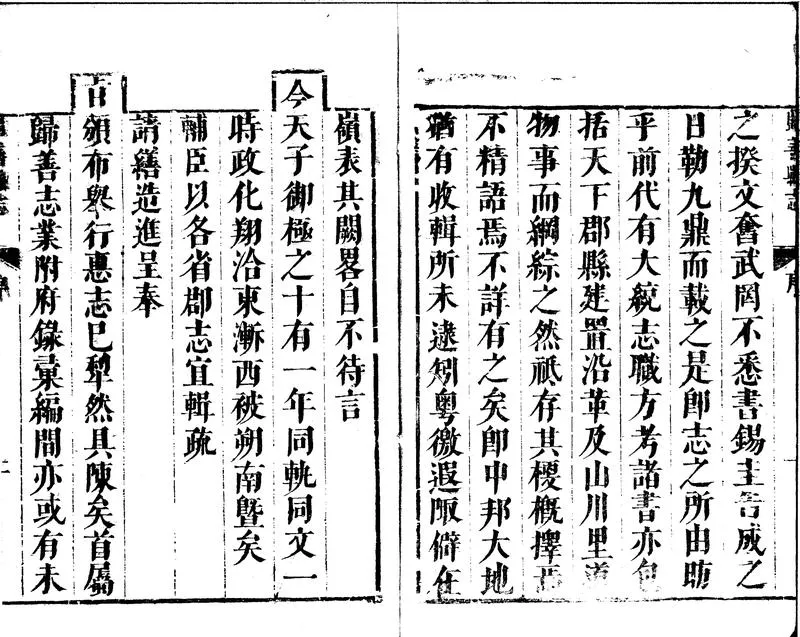 之揆文奮武罔不悉書錫圭告成之
日勒九鼎而載之是卽志之所由昉
乎前代有大統志職方考諸書亦包
括天下郡縣建置沿革及山川里道
物事而綱綜之然祗存其槩擇焉
不精語焉不詳有之矣卽中邦大地
猶有收輯所未逮矧粵徼遐陬僻在
嶺表其闕畧自不待言
今天子御極之十有一年同軌同文一
時政化翔洽東漸西被朔南曁矣
輔臣以各省郡志宜輯疏
請繕造進呈奉
旨頒布舉行惠志已犂然具陳矣首屬
歸善志業附府錄彙編間亦或有未
歸善縣志
序
二